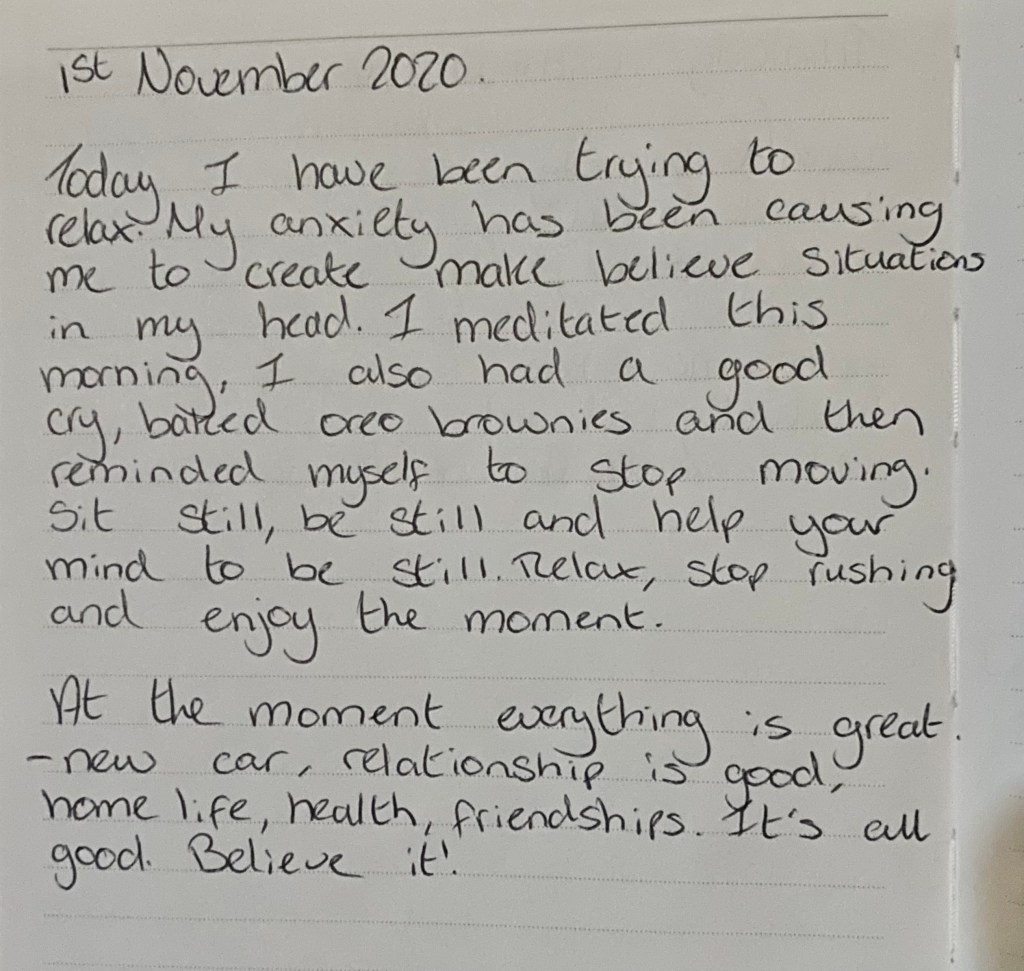 1st November 2020.
Today I have been trying to
relax. My anxiety has been causing
me to create make believe situations
in my head. I meditated this
morning, I also had a good
cry, baked oreo brownies and then
reminded myself to stop moving.
Sit still, be still and help your
mind to be still. Relax, stop rushing
and enjoy the moment.
At the moment everything is great.
- new car, relationship is good,
home life, health, friendships. It's all
good. Believe it!